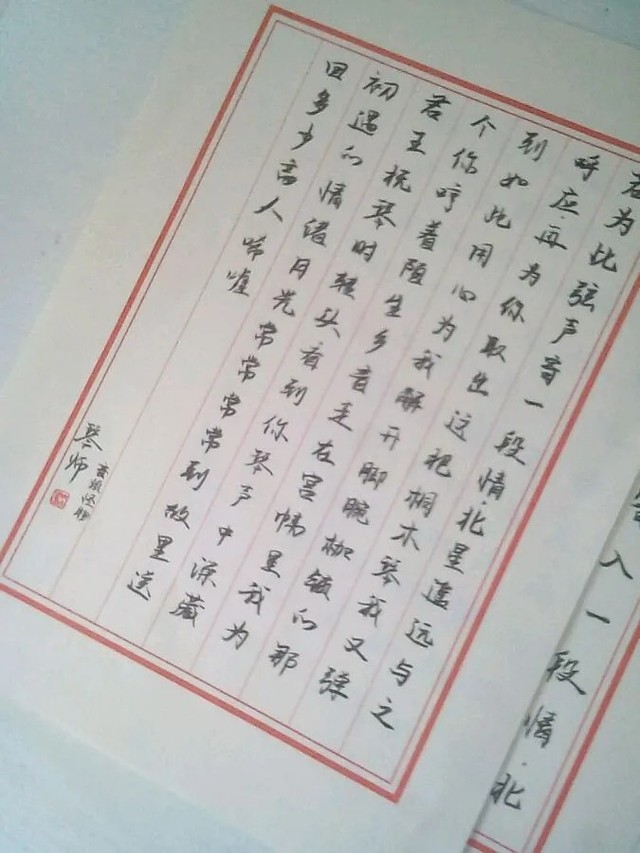 若为此弦声音一段情·北星遥远与之
呼应·再为你取出这把桐木琴我又弹
到如此用心为我解开脚腕枷锁的那
个你哼着陌生乡音走在宫帏里我为
君王抚琴时转头看到你琴声中深藏
初遇的情绪月光常常常常到故里送
回多少离人唏嘘
音频怪物
琴师
入一段情·北